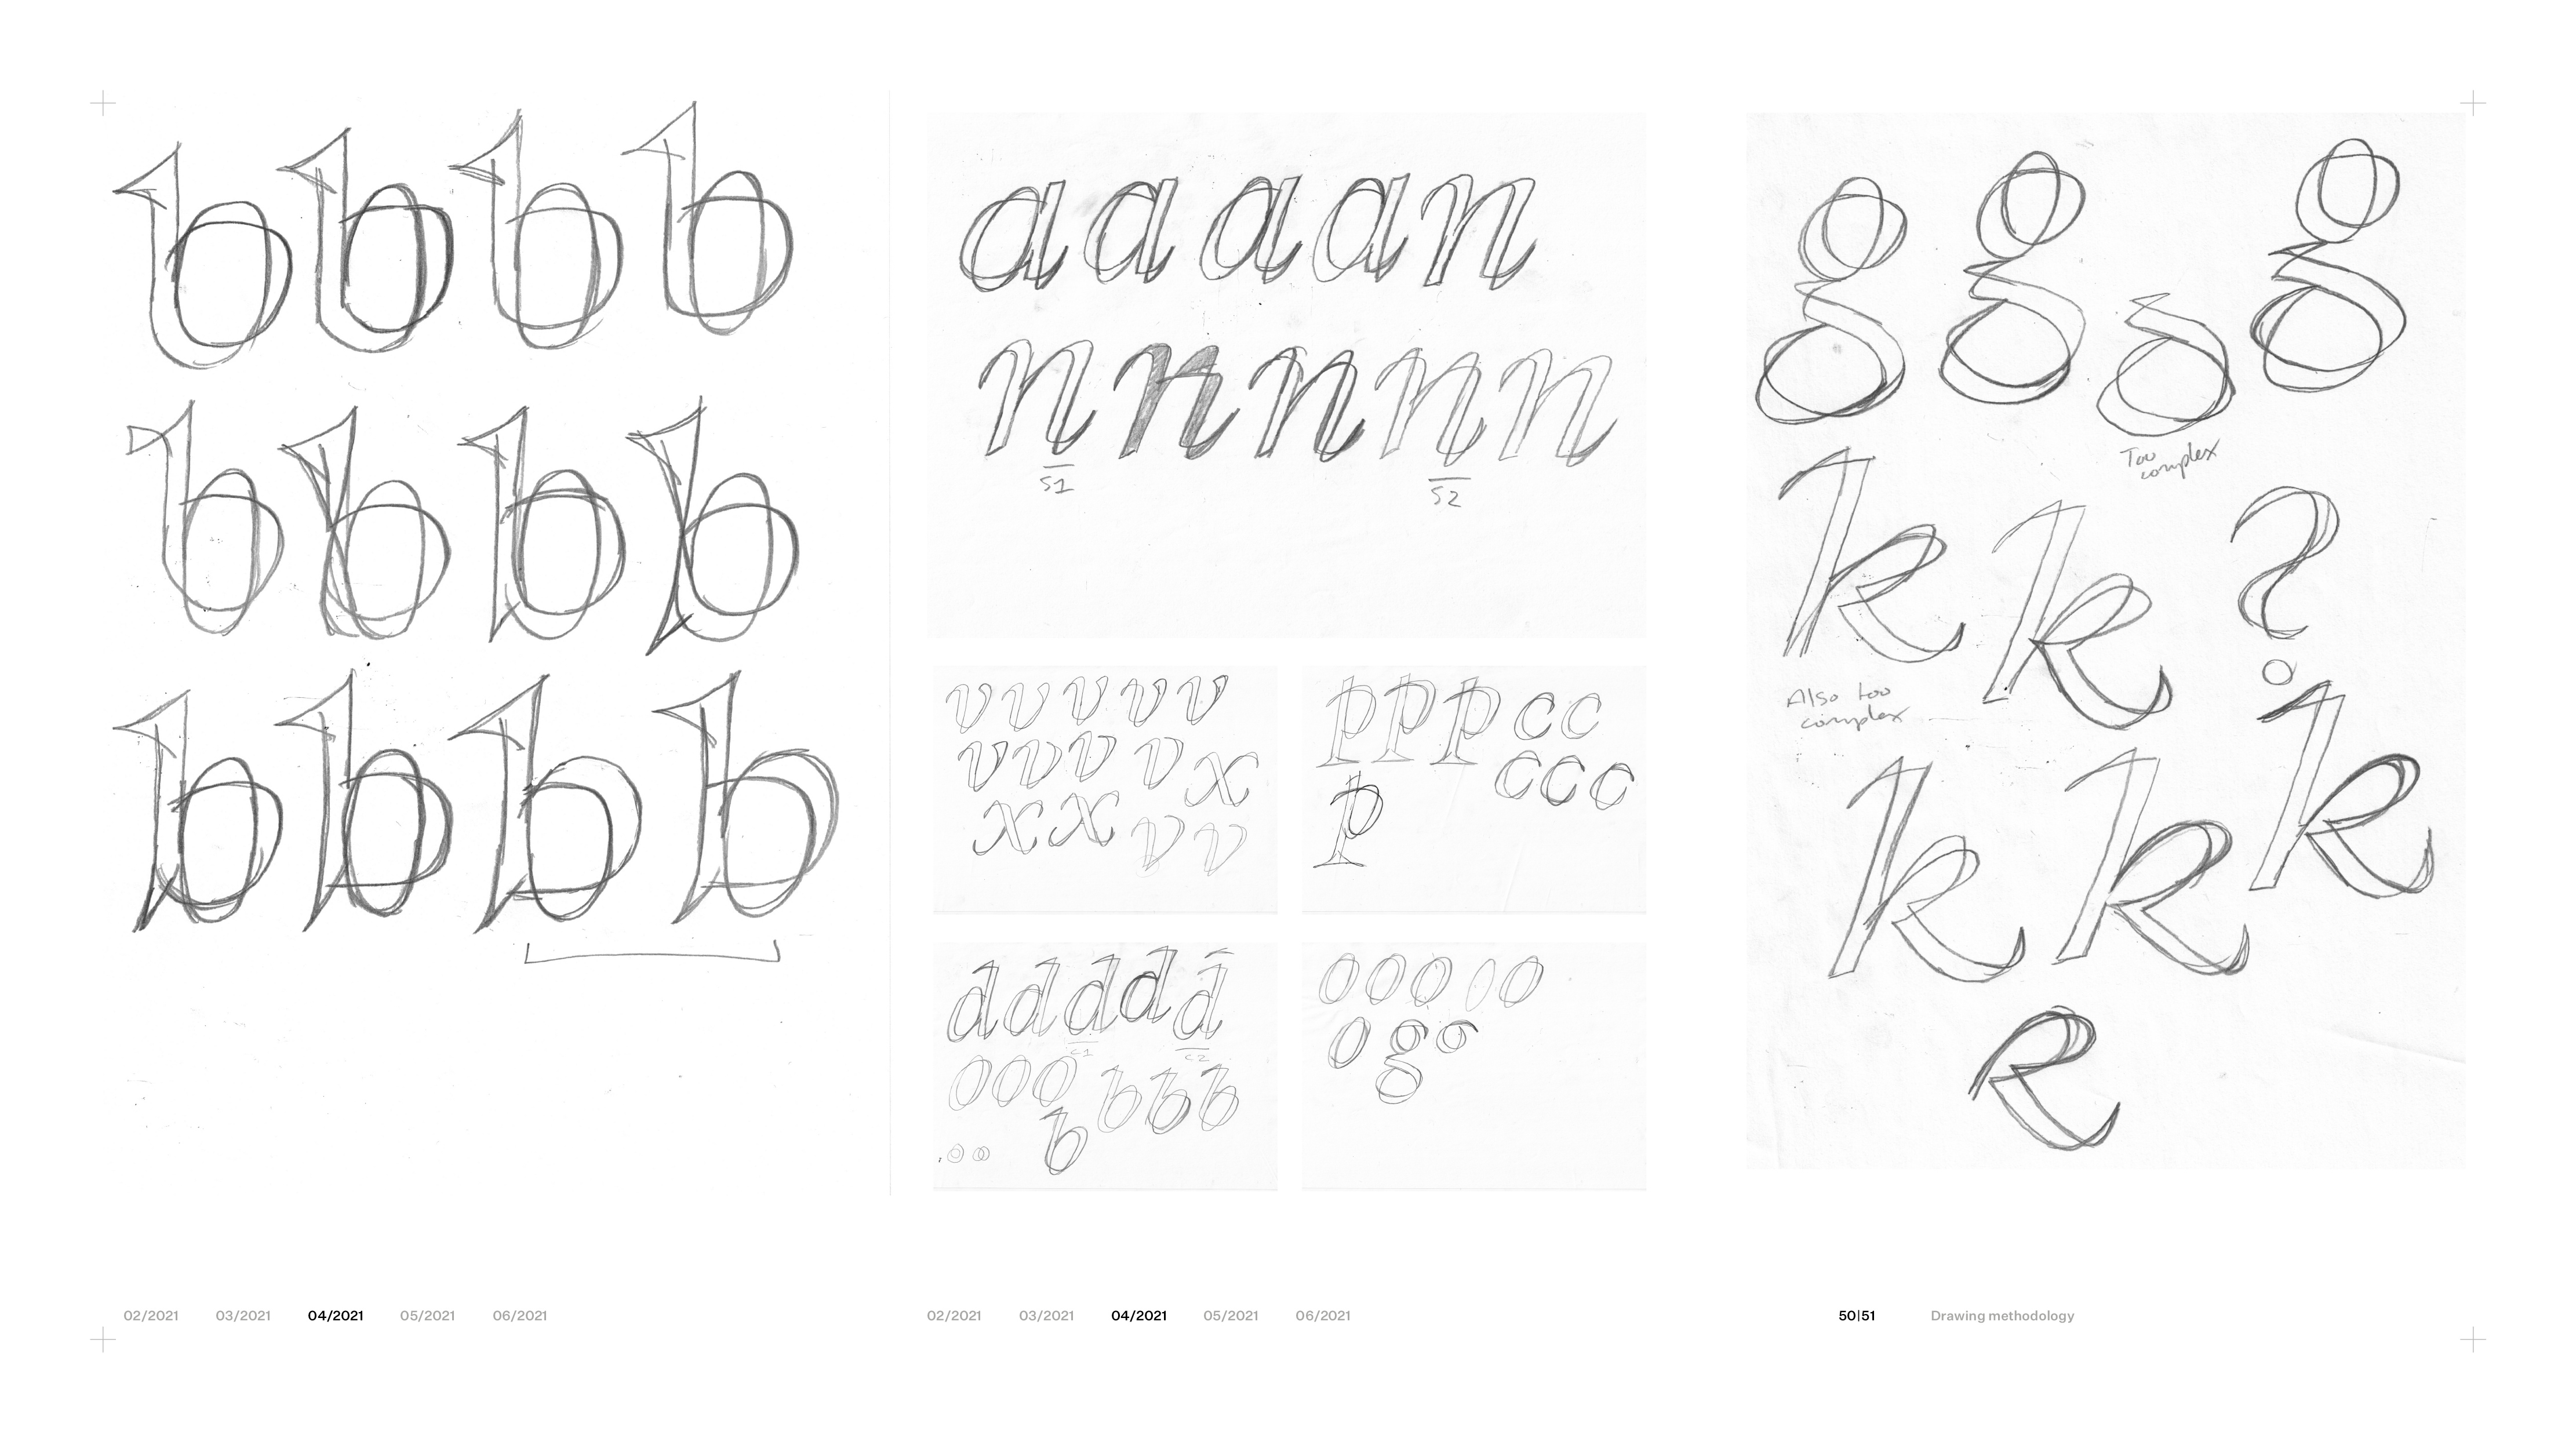 b b b b
b b b b
b b b b
a a a a n
n n n n n
S1 S2
v v v v v
v v v v x
x x v v
p p p c c
c c c
p
d d d d d
c1 c2
o o o b b b
b
o o o o o
o g
g g g
Too
complex
k k ?
Also too
complex
k k k
02/2021 03/2021 04/2021 05/2021 06/2021
02/2021 03/2021 04/2021 05/2021 06/2021
50|51 Drawing methodology